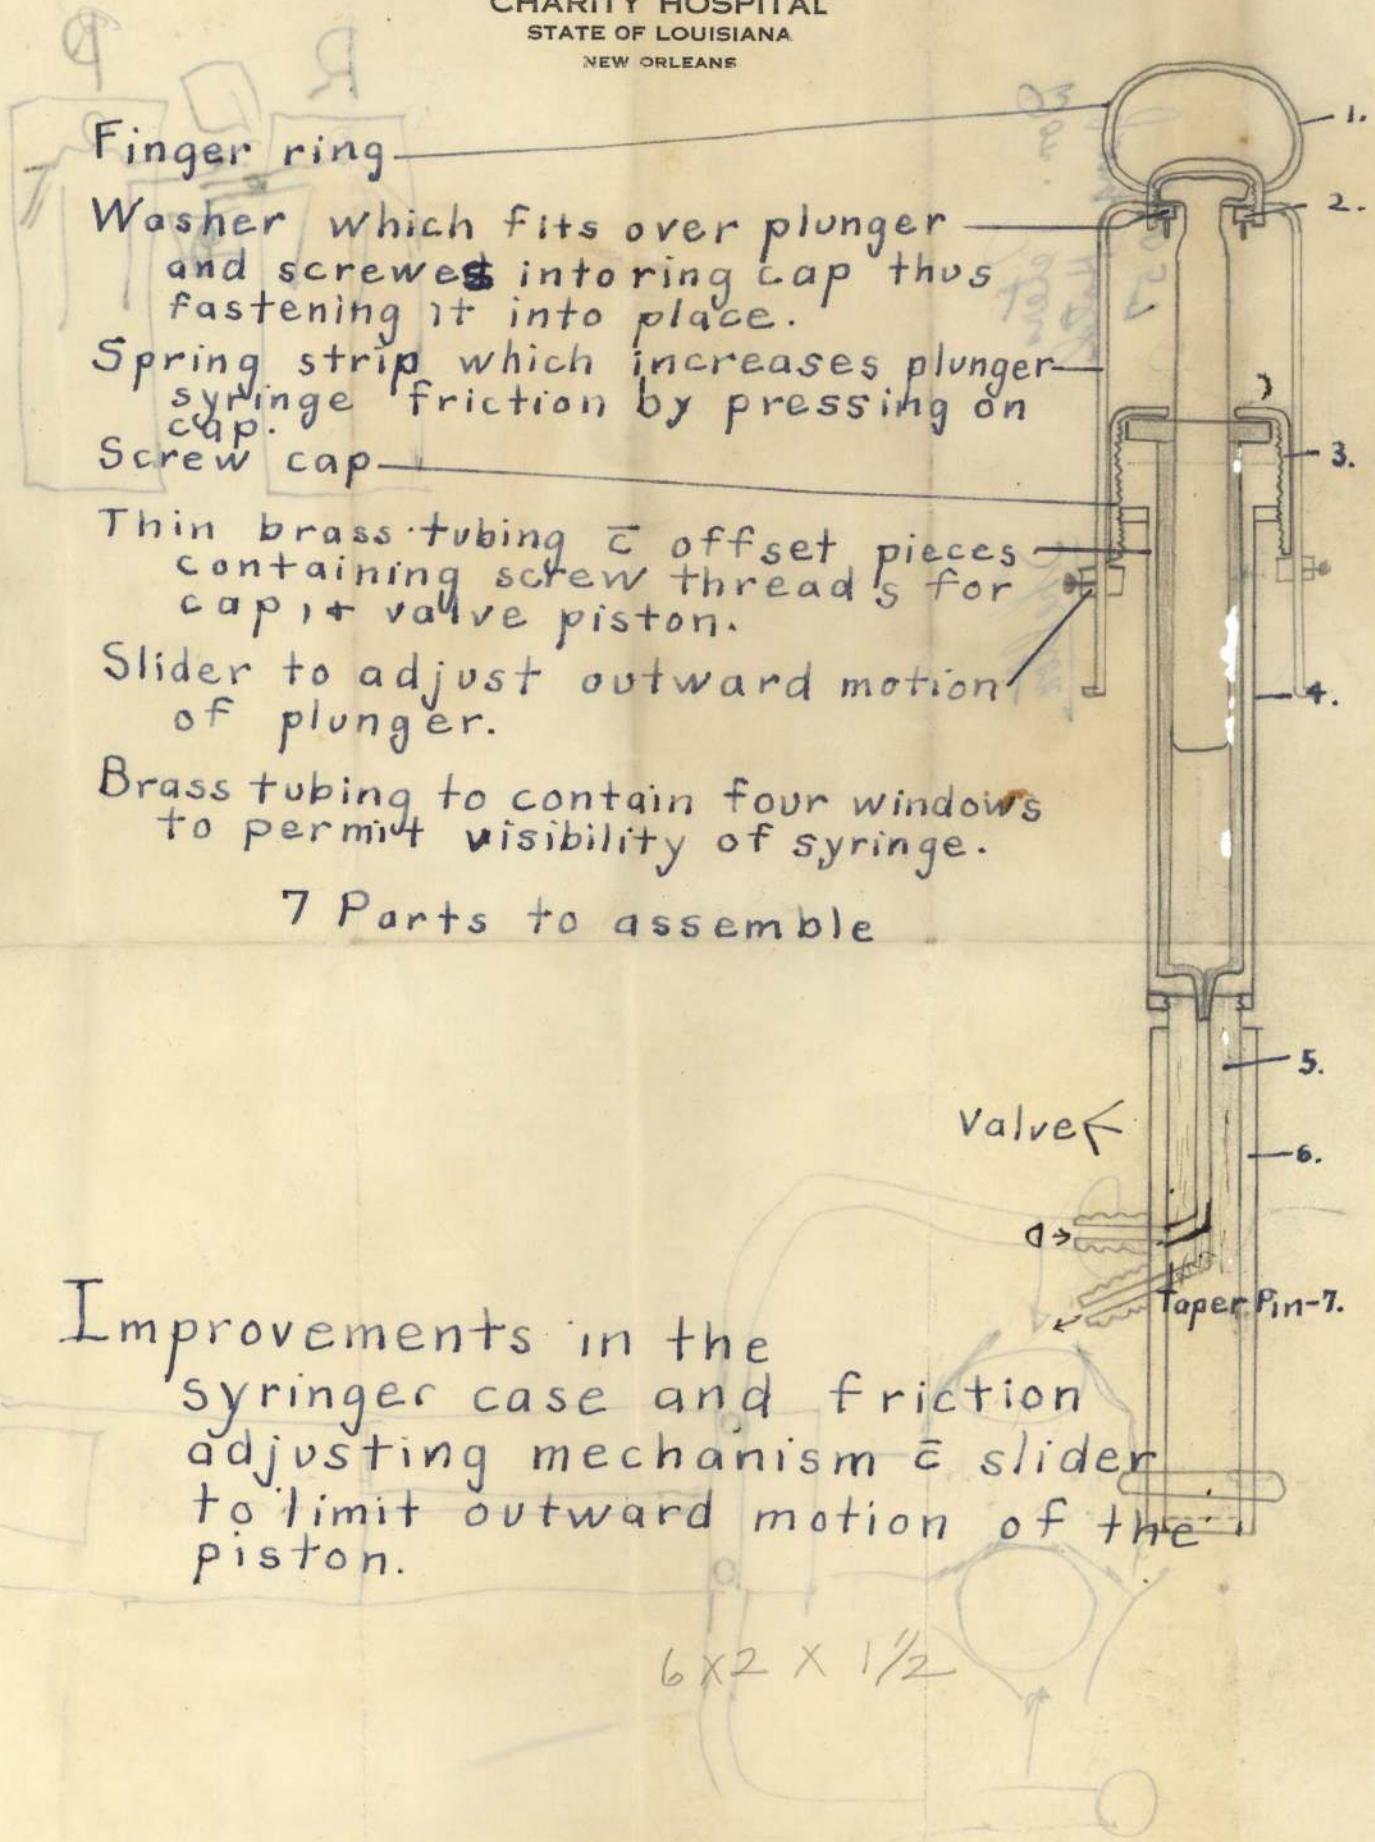 CHARITY HOSPITAL
STATE OF LOUISIANA
NEW ORLEANS
Finger ring
1.
Washer which fits over plunger
2.
and screwes into ring cap thus
fastening it into place.
Spring strip which increases plunger
syringe friction by pressing on
cap.
Screw cap
3.
Thin brass tubing c̄ offset pieces
containing screw threads for
cap, + valve piston.
Slider to adjust outward motion
4.
of plunger.
Brass tubing to contain four windows
to permit visibility of syringe.
7 Parts to assemble
5.
Valve
6.
Taper Pin-7.
Improvements in the
syringer case and friction
adjusting mechanism c̄ slider
to limit outward motion of the
piston.
6 x 2 x 1 1/2